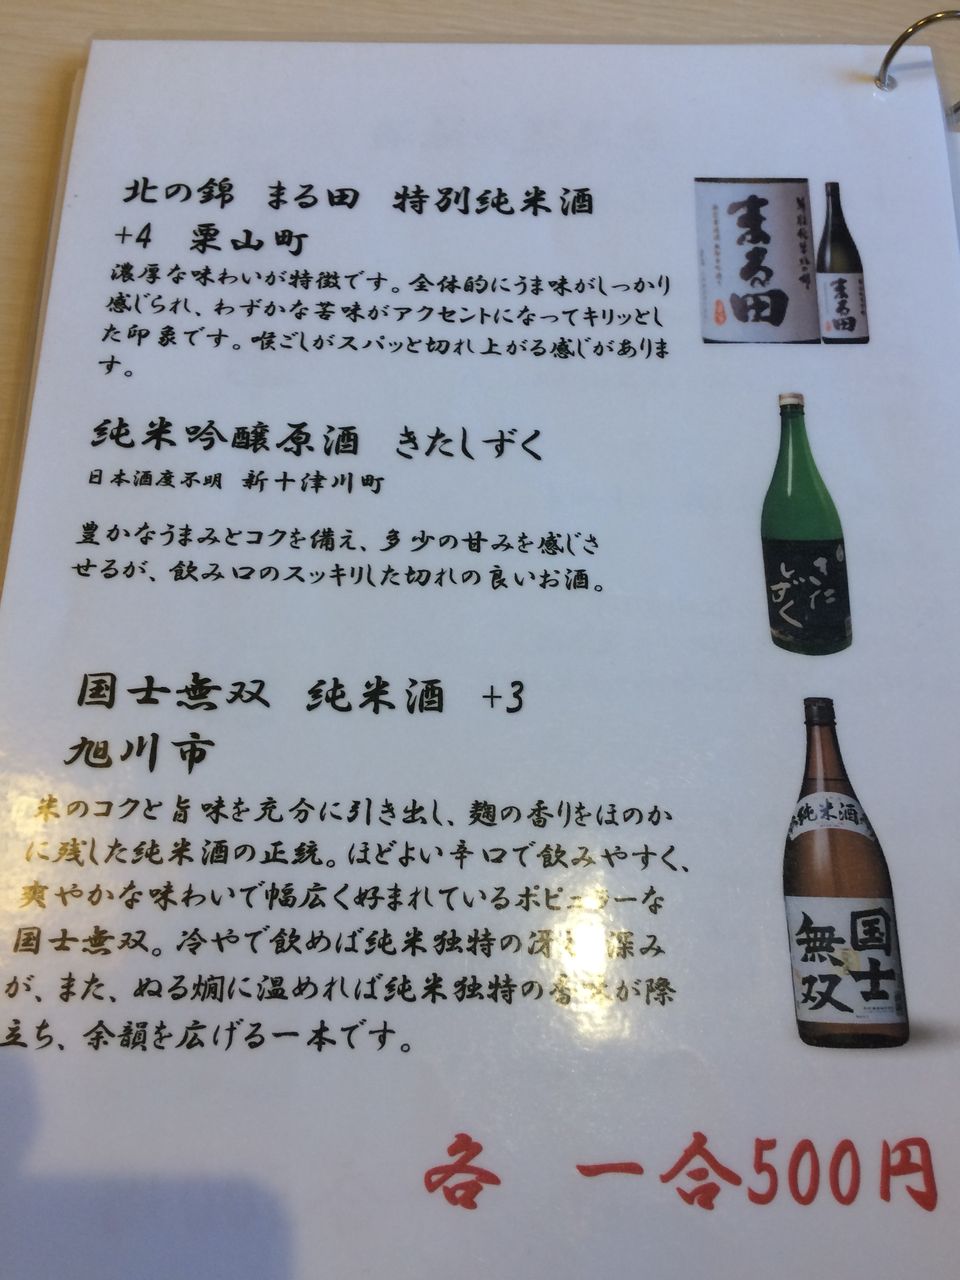 北の錦 まる田 特別純米酒
+4 栗山町
濃厚な味わいが特徴です。全体的にうま味がしっかり
感じられ、わずかな苦味がアクセントになってキリッとし
た印象です。喉ごしがスパッと切れ上がる感じがありま
す。
まる田
まる田
純米吟醸原酒 きたしずく
日本酒度不明 新十津川町
豊かなうまみとコクを備え、多少の甘みを感じさ
せるが、飲み口のスッキリした切れの良いお酒。
きたしずく
国士無双 純米酒 +3
旭川市
米のコクと旨味を充分に引き出し、麹の香りをほのか
に残した純米酒の正統。ほどよい辛口で飲みやすく、
爽やかな味わいで幅広く好まれているポピュラーな
国士無双。冷やで飲めば純米独特の冴え 深み
が、また、ぬる燗に温めれば純米独特の香味が際
立ち、余韻を広げる一本です。
純米酒
国士無双
各 一合500円